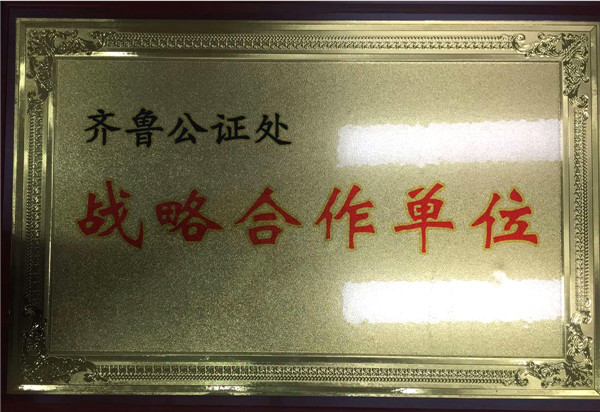 齐鲁公证处
战略合作单位